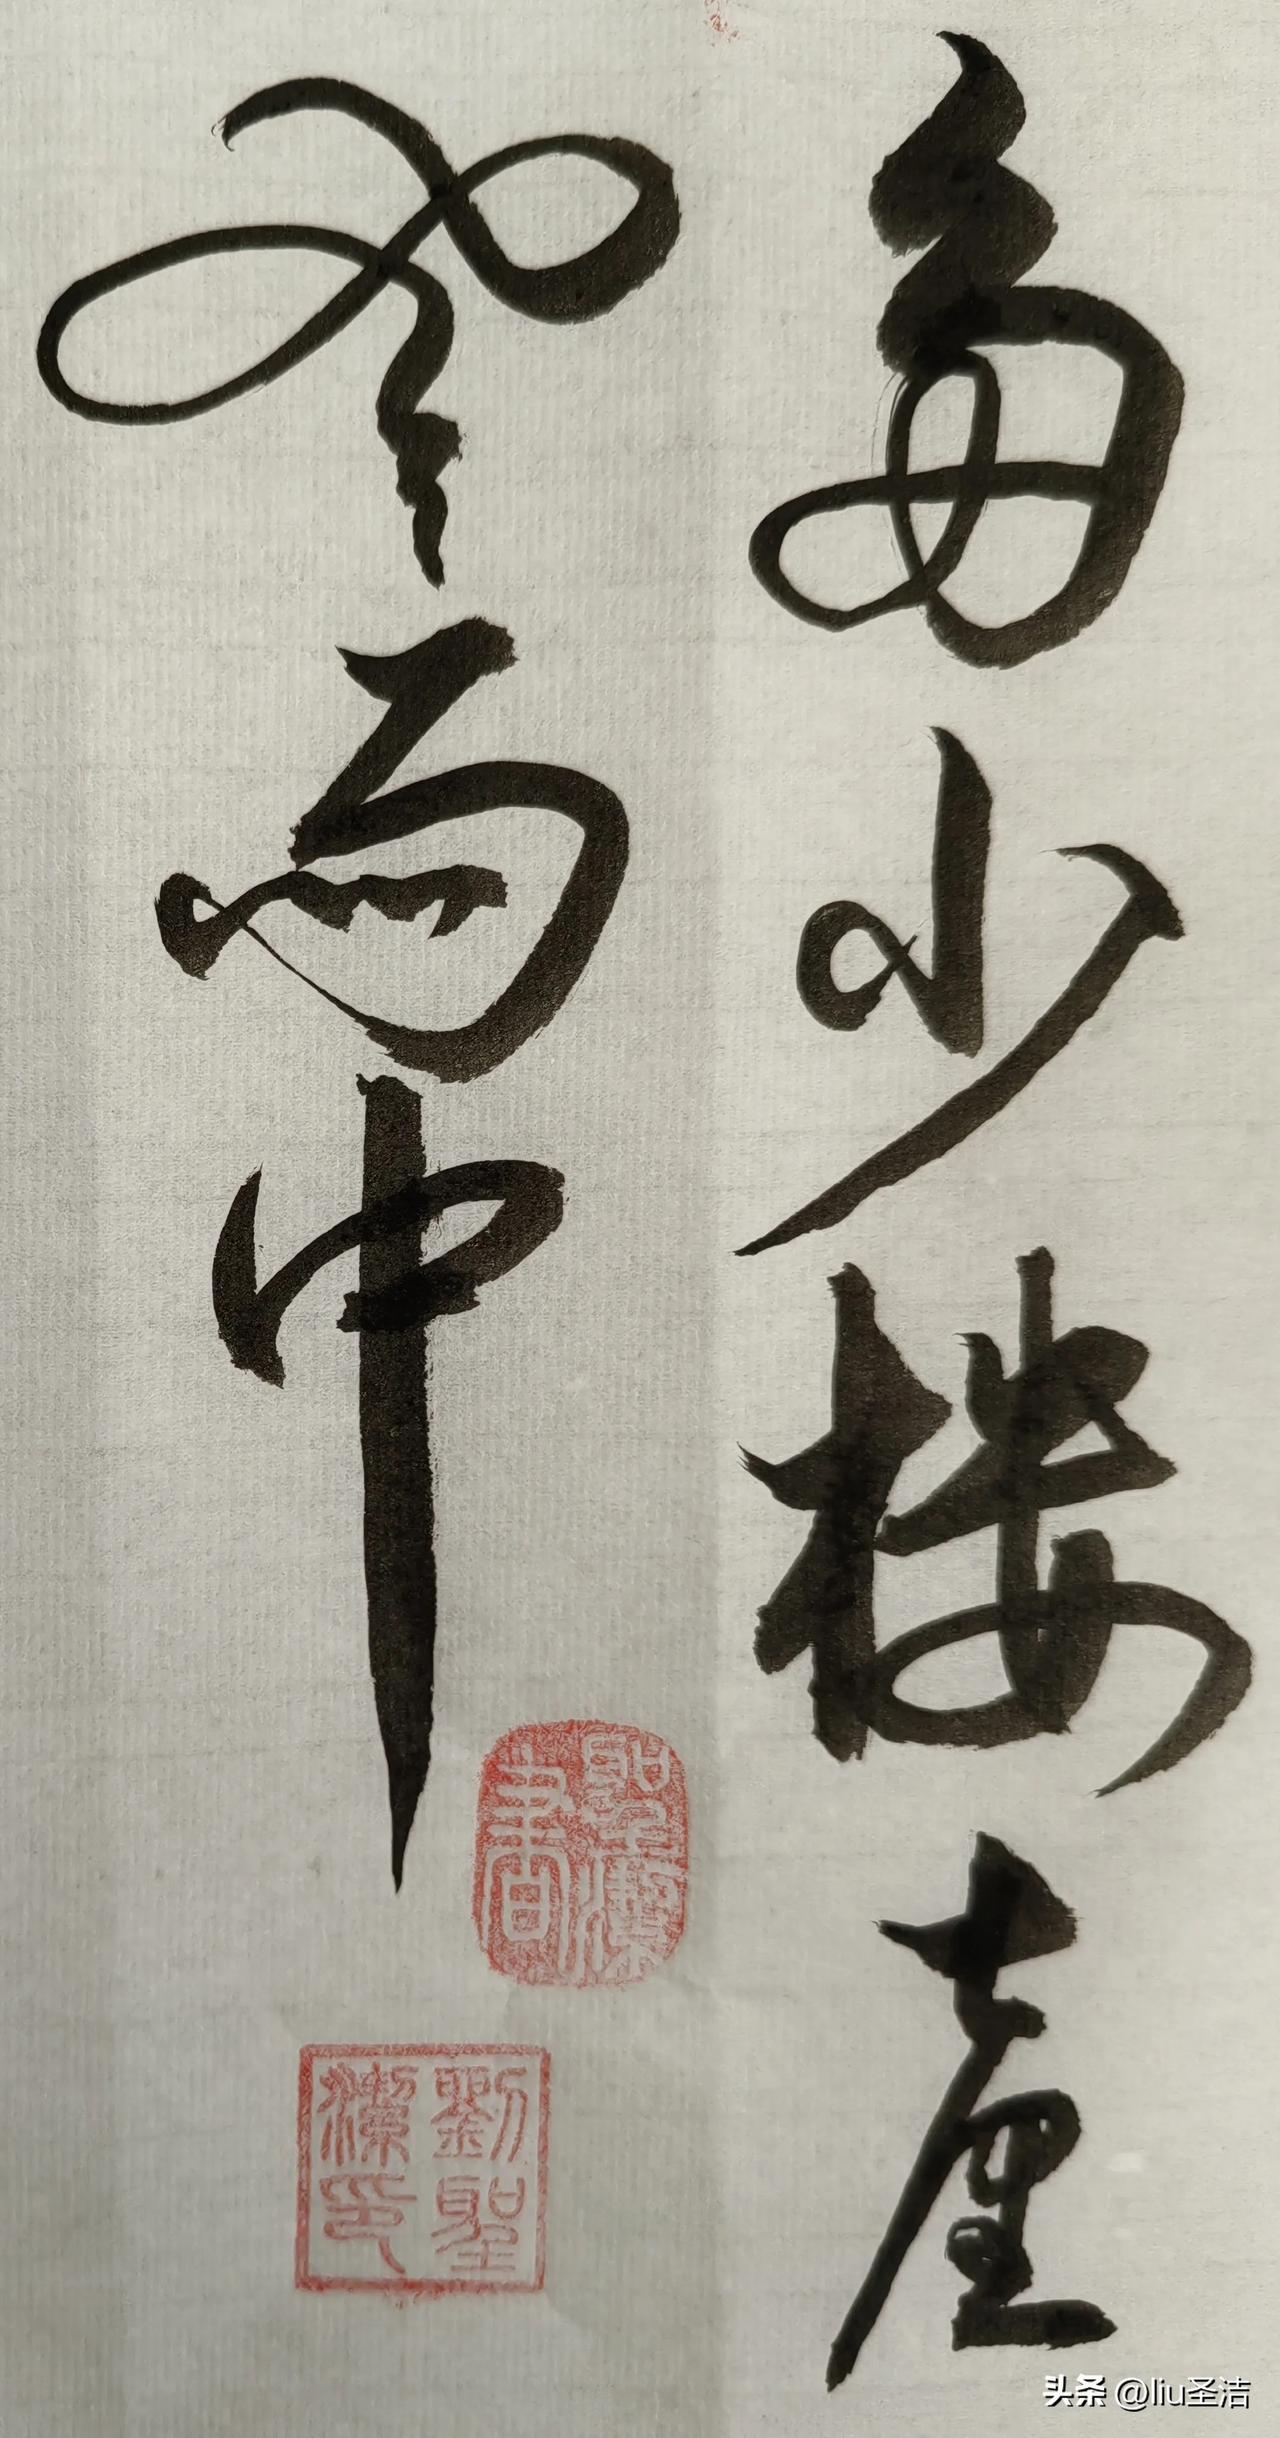 多少楼台
烟雨中
聖潔書
劉聖潔印
头条 @liu圣洁